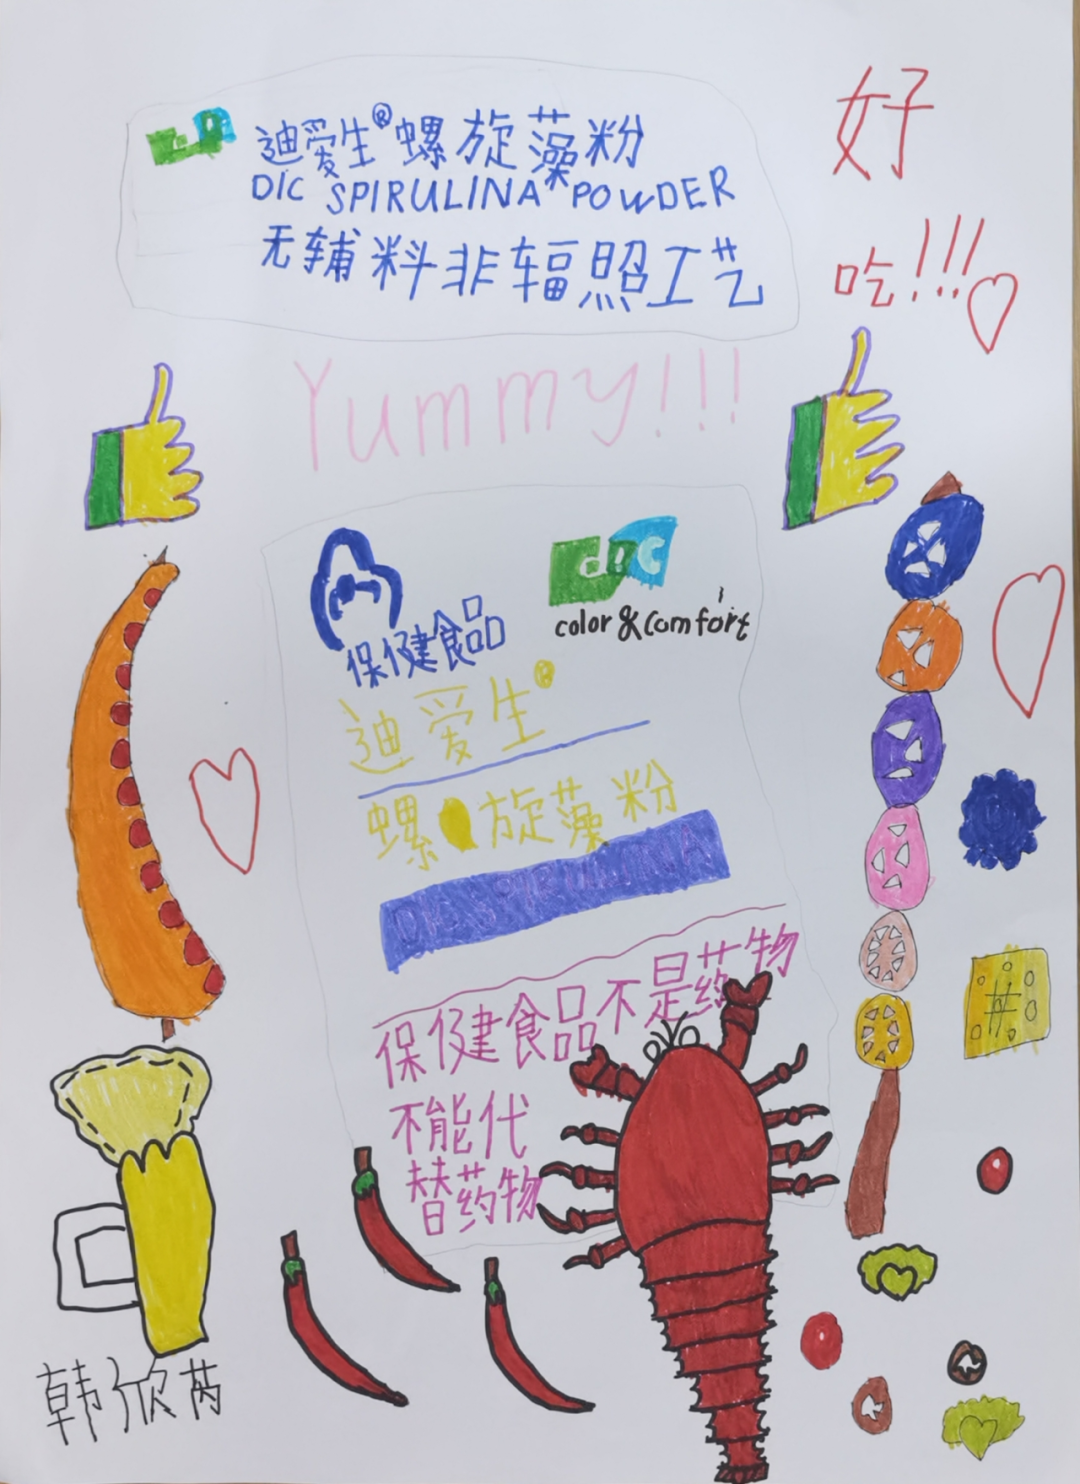 迪爱生®螺旋藻粉
DIC SPIRULINA POWDER
无辅料非辐照工艺
好
吃!!!
Yummy!!!
保健食品
dic
color & comfort
迪爱生®
螺旋藻粉
DIC SPIRULINA
保健食品不是药物
不能代
替药物
#
韩欣芮